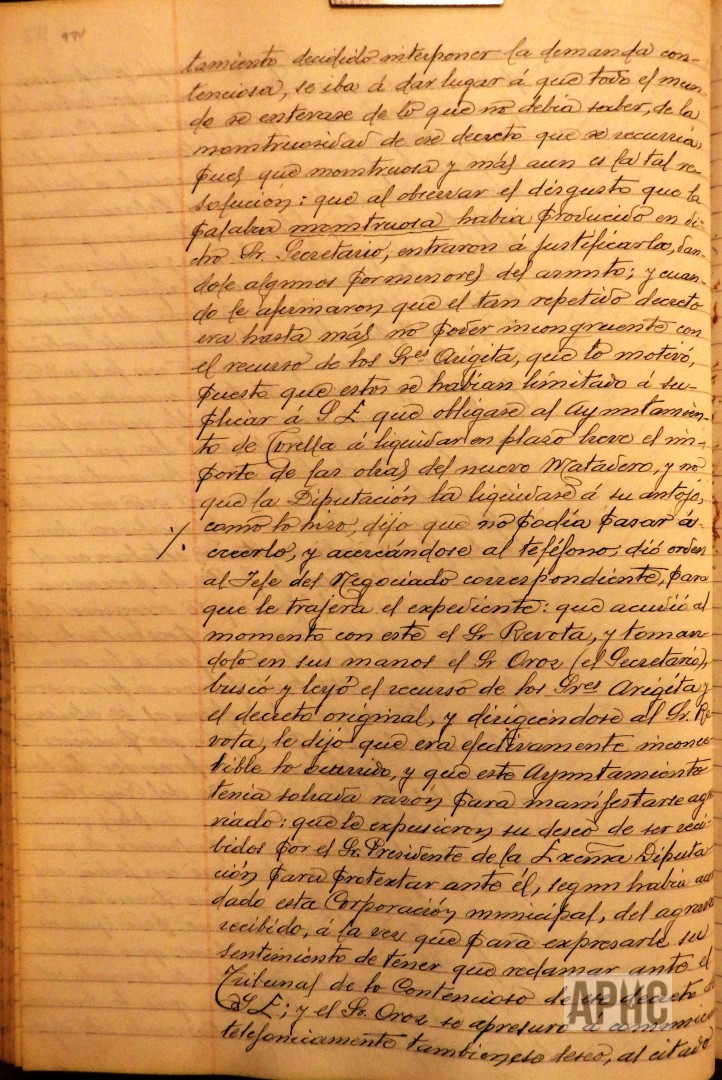 tamiento decidido interponer la demanda con-
tenciosa, se iba á dar lugar á que todo el mun-
do se enterase de lo que no debia saber, de la
monstruosidad de ese decreto que se recurria,
pues que monstruosa y más aun es la tal re-
solución: que al observar el disgusto que la
palabra monstruosa habia producido en di-
cho Sr. Secretario, entraron á justificarla, dan-
dole algunos pormenores del asunto; y cuan-
do le afirmaron que el tan repetido decreto
era hasta más no poder incongruente con
el recurso de los Sres Arigita, que lo motivó,
puesto que estos se habian limitado á su-
plicar á S E que obligase al Ayuntamien-
to de Corella á liquidar en plazo breve el im-
porte de las obras del nuevo Matadero, y no
que la Diputación la liquidase á su antojo,
como lo hizo, dijo que no podía pasar á
creerlo, y acercándose al teléfono, dió orden
al Jefe del Negociado correspondiente, para
que le trajera el expediente: que acudió al
momento con este el Sr Revota, y toman-
dolo en sus manos el Sr Oroz (el Secretario),
buscó y leyó el recurso de los Sres Arigita y
el decreto original, y dirigiéndose al Sr. Re
vota, le dijo que era efectivamente inconce
bible lo ocurrido, y que este Ayuntamiento
tenia sobrada razón para manifestarse agra
viado: que le expusieron su deseo de ser reci-
bidos por el Sr. Presidente de la Excma Diputa
ción para protextar ante él, segun habia acor
dado esta Corporación municipal, del agravio
recibido, á la vez que para expresarle su
sentimiento de tener que reclamar ante el
Tribunal de lo Contencioso de ese decreto de
S E; y el Sr. Oroz se apresuró á comunicar
telefonicamente tambien ese deseo, al citado
APHC